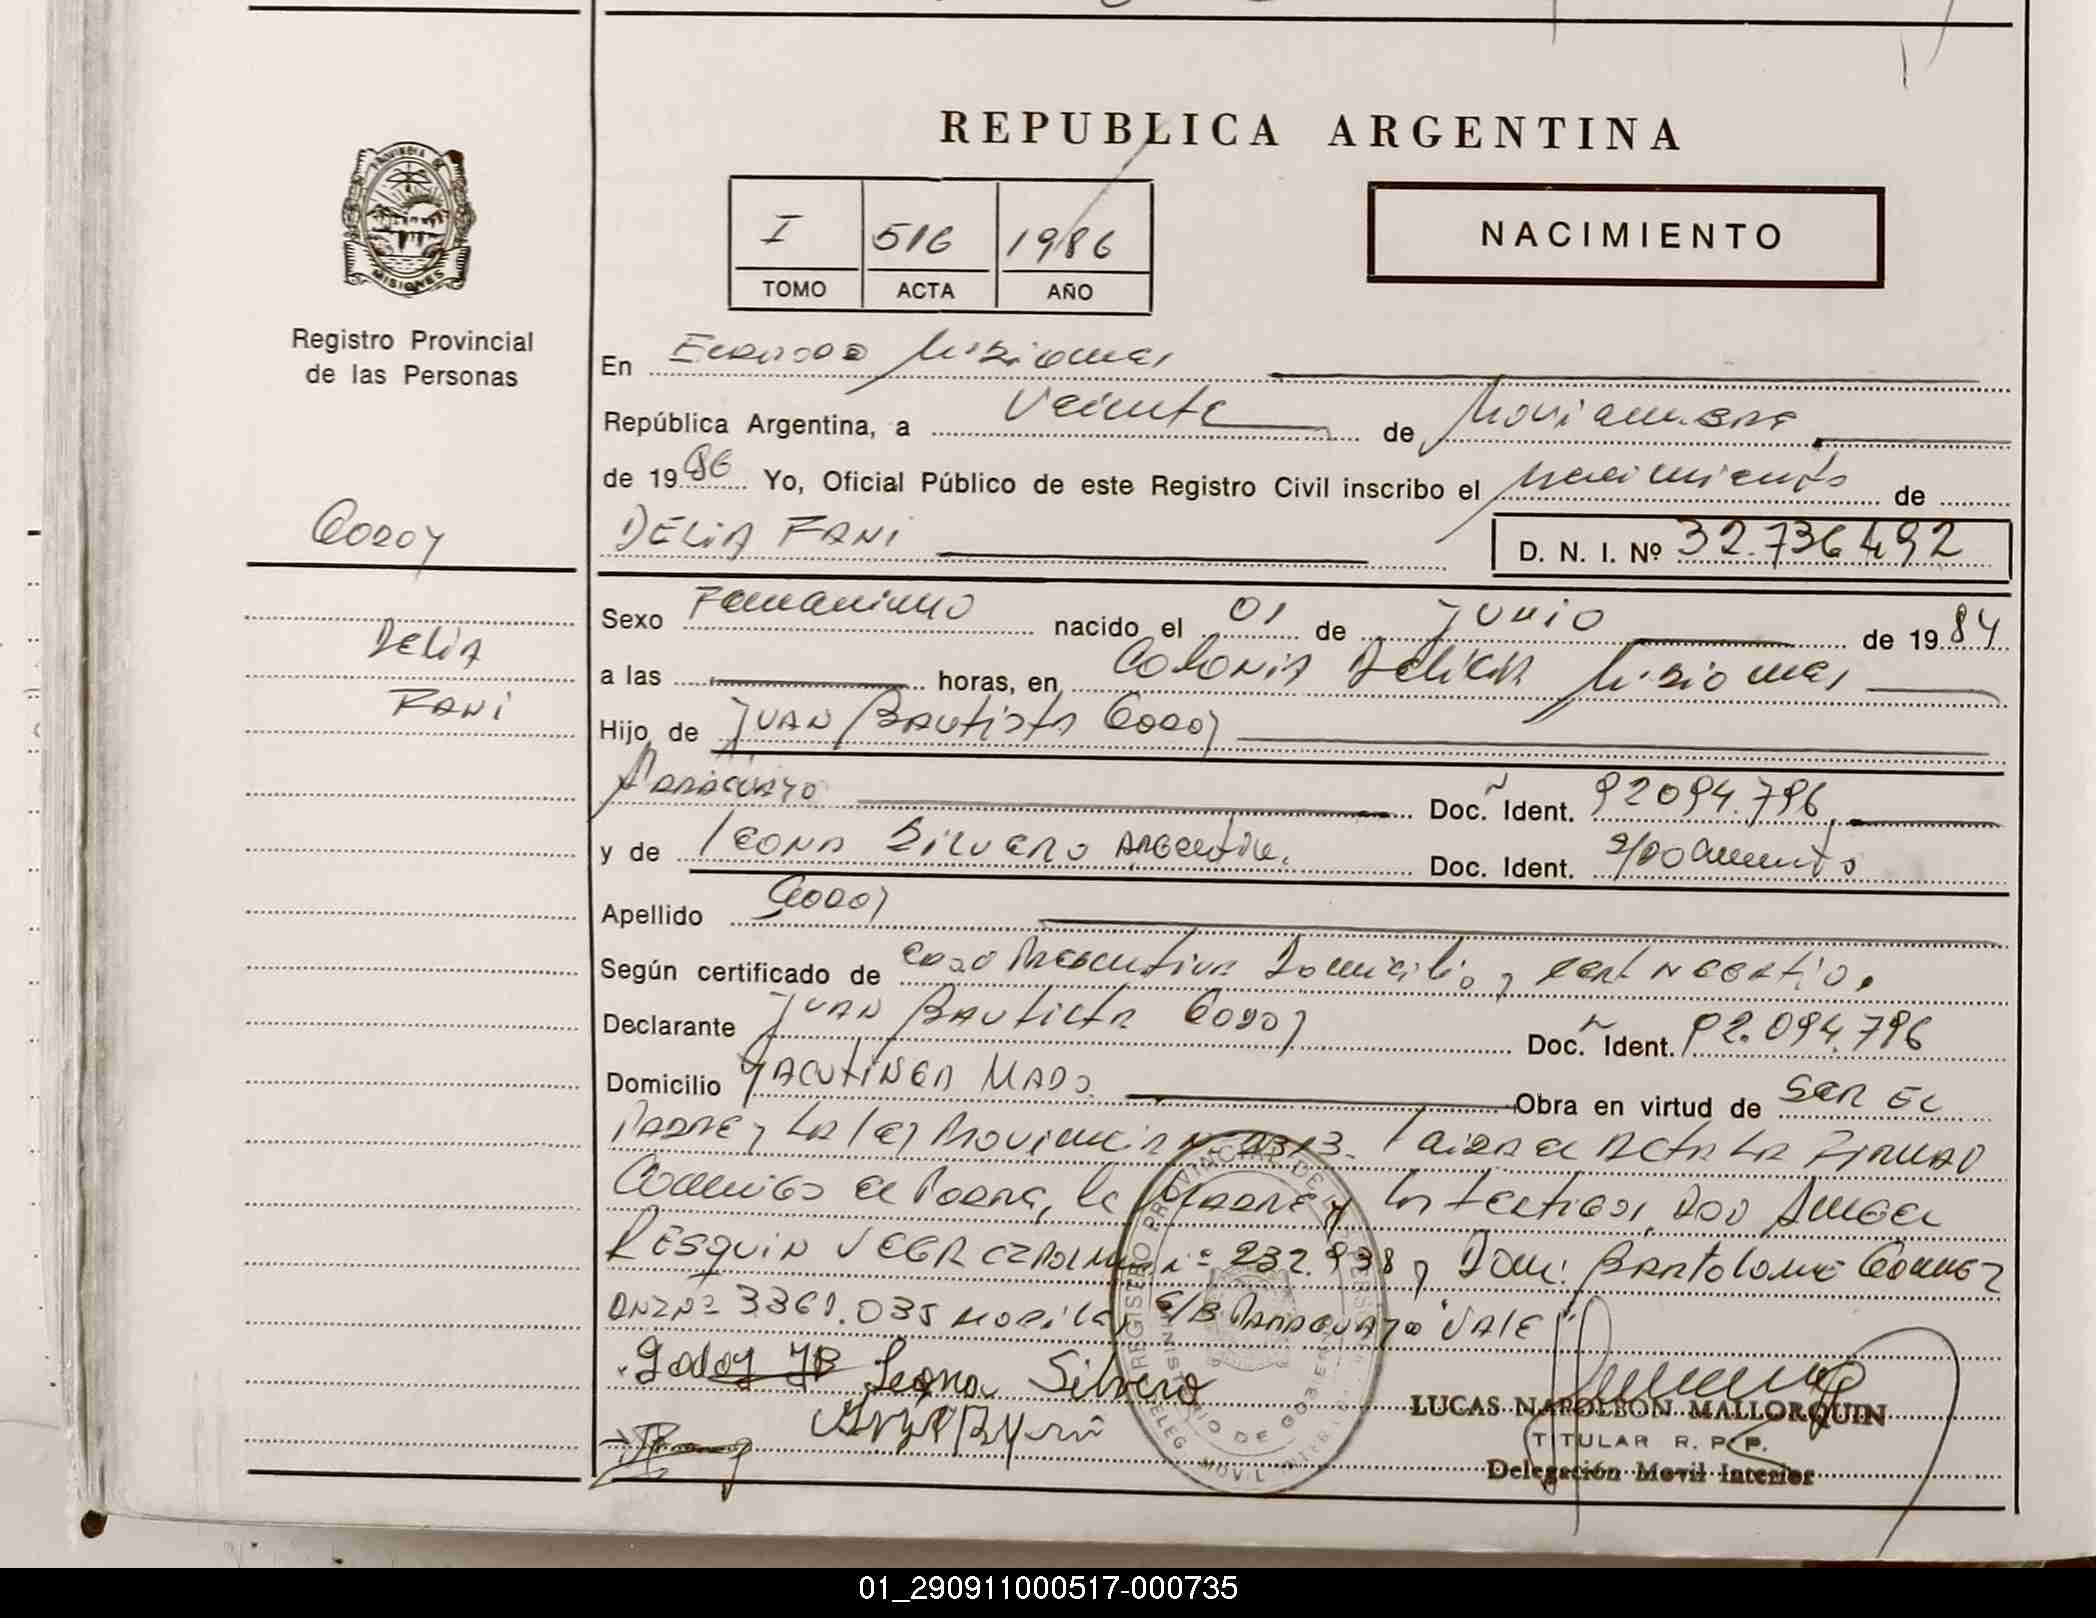 REPUBLICA ARGENTINA
PROVINCIA DE
MISIONES
I 516 1986
TOMO ACTA AÑO
NACIMIENTO
Registro Provincial
de las Personas
En Misiones
República Argentina, a Veinte de Noviembre
de 1986 Yo, Oficial Público de este Registro Civil inscribo el nacimiento de
Godoy
DELIA FANI
D. N. I. Nº 32.736.492
Delia
Fani
Sexo Femenino nacido el 01 de Junio de 1984
a las horas, en Colonia Delicia Misiones
Hijo de Juan Bautista Godoy
Paraguayo Doc. Ident. 92094.796
y de Leona Silvero Argentina. Doc. Ident. s/Documento
Apellido Godoy
Según certificado de Domicilio, y cert Negativo.
Declarante Juan Bautista Godoy Doc. Ident. 92.094.796
Domicilio Yacutinga Mado. Obra en virtud de Ser El
Padre y La Ley Provincial Nº Leida el Acta La Firman
Conmigo el Padre, la Madre y los testigos, Don Angel
Resquin Vega nº 232.938 y Don: Bartolome Gomez
DNI Nº 3361.035 S/B Paraguayo "VALE"
Godoy JB Leona Silvero
LUCAS NAPOLEON MALLORQUIN
TITULAR R. P. P.
Delegación Movil Interior
REGISTRO PROVINCIAL DE LAS PERSONAS
MINISTERIO DE GOBIERNO
DELEG. MOVIL INTERIOR
01_290911000517-000735